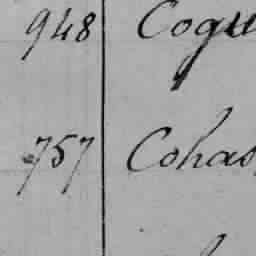 948 Coqu
757 Cohas